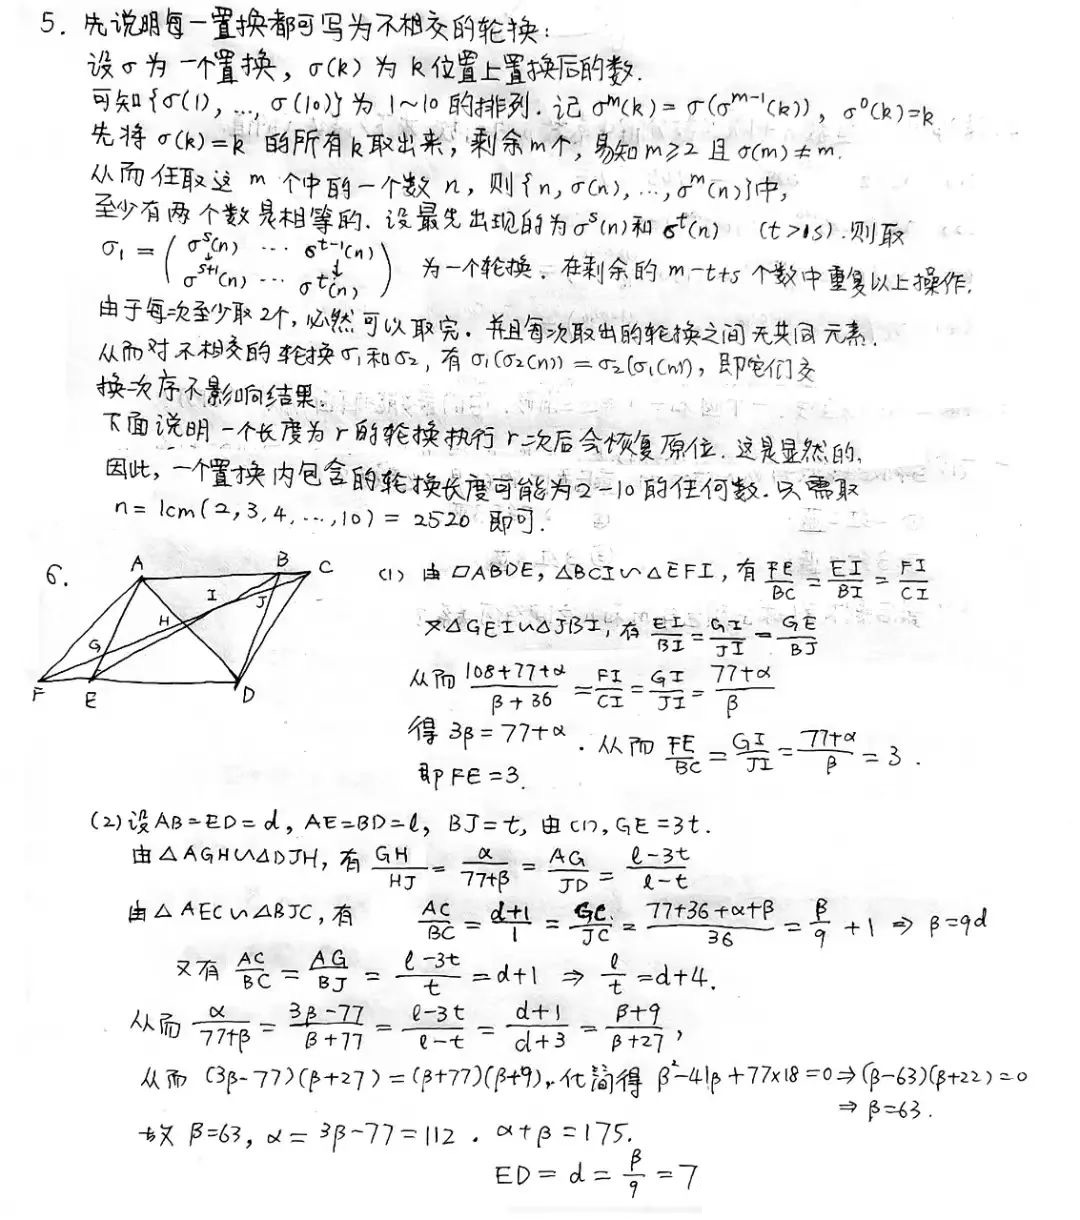 5. 先说明每一置换都可写为不相交的轮换:
设σ为一个置换, σ(k)为k位置上置换后的数.
可知{σ(1), ..., σ(10)}为1~10的排列. 记σ^m(k)=σ(σ^{m-1}(k)), σ^0(k)=k
先将σ(k)=k的所有k取出来, 剩余m个, 易知m≥2且σ(m)≠m.
从而任取这m个中的一个数n, 则{n, σ(n), ..., σ^m(n)}中,
至少有两个数是相等的. 设最先出现的为σ^s(n)和σ^t(n) (t>s). 则取
σ₁ = (σ^s(n) ... σ^{t-1}(n)
↓ ↓
σ^{s+1}(n) ... σ^t(n)) 为一个轮换. 在剩余的m-t+s个数中重复以上操作.
由于每次至少取2个, 必然可以取完. 并且每次取出的轮换之间无共同元素.
从而对不相交的轮换σ₁和σ₂, 有σ₁(σ₂(n))=σ₂(σ₁(n)), 即它们交
换次序不影响结果.
下面说明一个长度为r的轮换执行r次后会恢复原位. 这是显然的.
因此, 一个置换内包含的轮换长度可能为2-10的任何数. 只需取
n=lcm(2,3,4,...,10)=2520 即可.
6.
A B C
I J
H
G
F E D
(1) 由▱ABDE, △BCI∽△EFI, 有 FE/BC = EI/BI = FI/CI
又△GEI∽△JBI, 有 EI/BI = GI/JI = GE/BJ
从而 (108+77+α)/(β+36) = FI/CI = GI/JI = (77+α)/β
得 3β=77+α. 从而 FE/BC = GI/JI = (77+α)/β = 3.
即FE=3.
(2) 设AB=ED=d, AE=BD=l, BJ=t, 由(1), GE=3t.
由△AGH∽△DJH, 有 GH/HJ = α/(77+β) = AG/JD = (l-3t)/(l-t)
由△AEC∽△BJC, 有 AC/BC = (d+1)/1 = GC/JC = (77+36+α+β)/36 = β/9 + 1 ⇒ β=9d
又有 AC/BC = AG/BJ = (l-3t)/t = d+1 ⇒ l/t = d+4.
从而 α/(77+β) = (3β-77)/(β+77) = (l-3t)/(l-t) = (d+1)/(d+3) = (β+9)/(β+27),
从而 (3β-77)(β+27)=(β+77)(β+9), 化简得 β²-41β+77×18=0 ⇒ (β-63)(β+22)=0
⇒ β=63.
故 β=63, α=3β-77=112. α+β=175.
ED = d = β/9 = 7